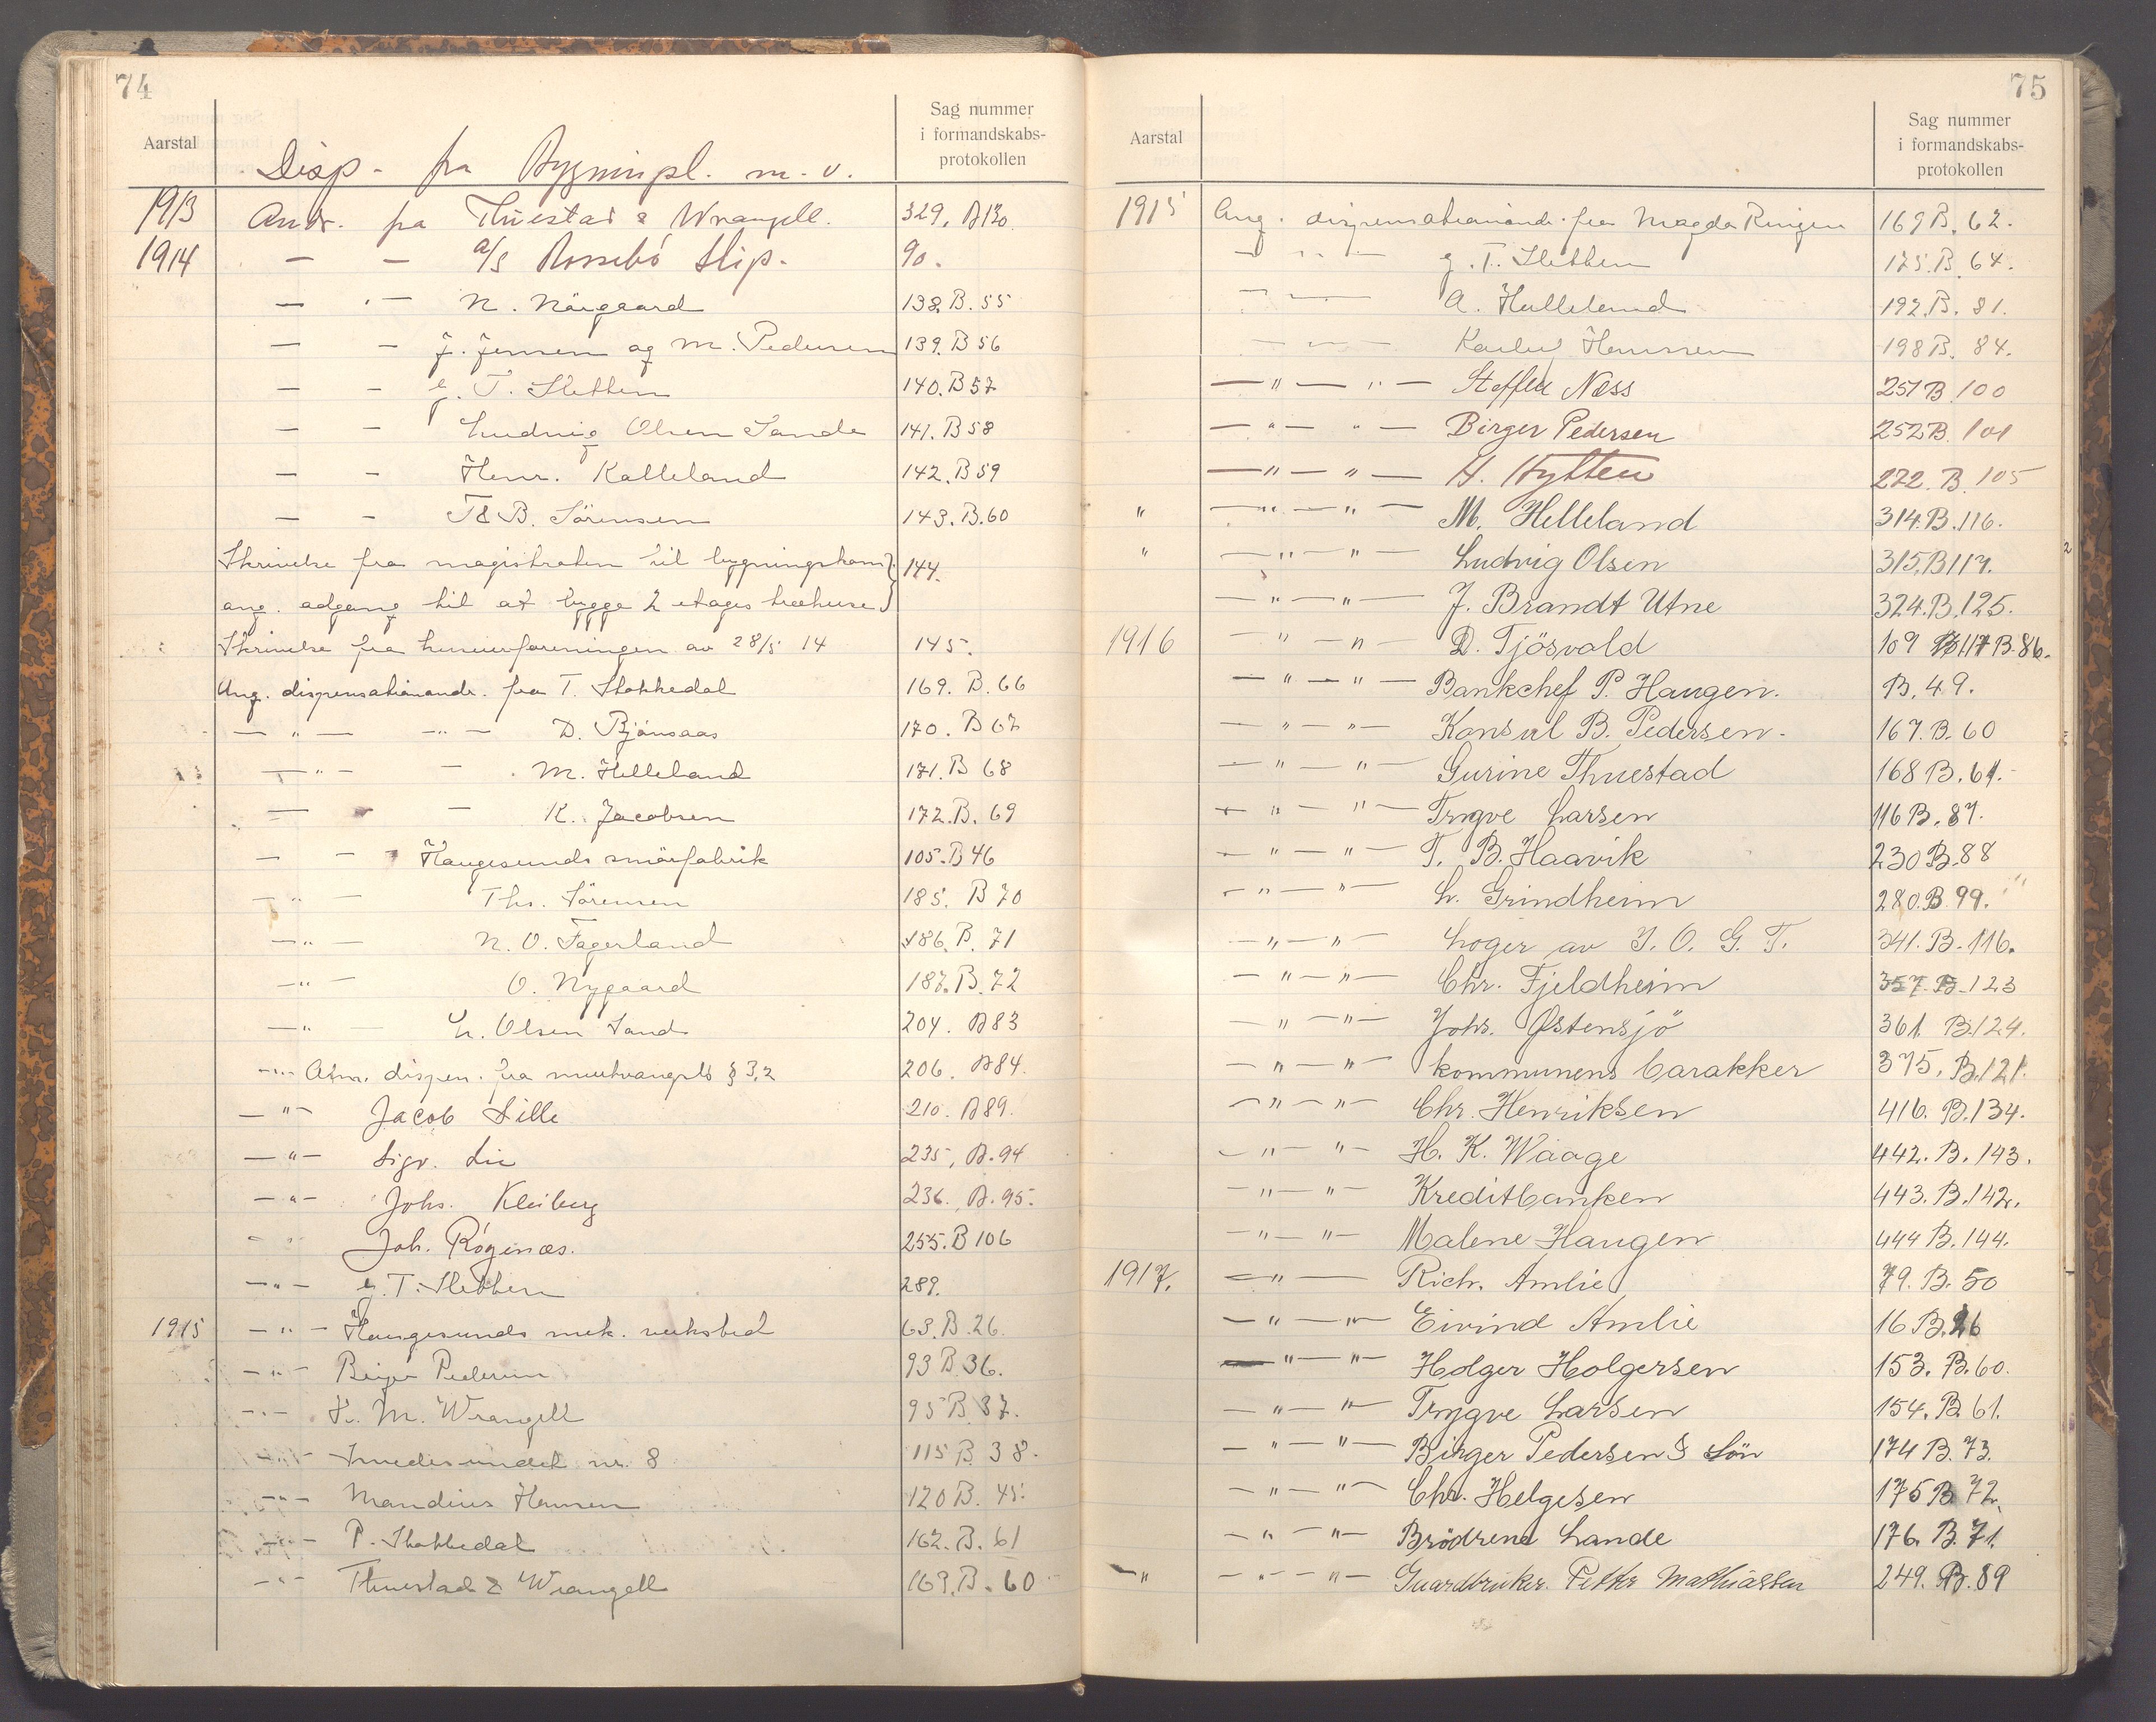 74
Aarstal
Sag nummer
i formandskabs-
protokollen
Disp - fra Bygningspl. m. v.
1913 Andr. fra Thuestad & Wrangell. 329. B 130.
1914 — — a/s Rossebö Slip. 90.
— " — N. Nörgaard 138. B. 55
— — J. Jensen og M. Pedersen 139. B 56
— — g. T. Sletten 140. B 57
— — Ludvig Olsen Sande 141. B 58
— — Henr. Kalleland 142. B 59
— — T & B. Sörensen 143. B. 60
Skrivelse fra magistraten til bygningskom. 144.
ang. adgang til at bygge 2 etages træhuse
Skrivelse fra huseierforeningen av 28/5 14 145.
Ang. dispensationandr. fra T. Stakkedal 169. B. 66
— " — — " — D. Bjönsaas 170. B 67
— " — — M. Helleland 171. B 68
— — K. Jacobsen 172. B. 69
— — Haugesunds smörfabrik 105. B 46
— " — Ths. Sörensen 185. B 70
— " — N. O. Fagerland 186. B. 71
— " — O. Nygaard 187. B. 72
— " — L. Olsen Sand 204. B 83
— " — Alm. dispen. fra murtvangsl. § 3,2 206. B 84.
— " — Jacob Lille 210. B 89.
— " — Sigv. Lie 235, B. 94
— " — Johs. Kleiberg 236. B. 95.
" Joh. Rögenæs. 255. B 106
— " — g. T. Sletten 289.
1915 — " — Haugesunds mek. verksted 63. B. 26.
— " — Birger Pedersen 93 B 36.
— " — K. M. Wrangell 95 B 37.
— " — Smedesundet nr. 8 115 B 38.
— " — Mandius Hansen 120 B. 45.
— " — P. Stakkedal 162. B. 61
— " — Thuestad & Wrangell 169. B. 60
75
Aarstal
Sag nummer
i formandskabs-
protokollen
1915 Ang. dispensationandr. fra Magda Ringen 169 B. 62.
— " — g. T. Sletten 175. B. 64.
— — A. Helleland 192. B. 81.
— — — Karlus Hansen 198 B. 84.
— " — " — Steffen Næss 251 B. 100
— " — " — Birger Pedersen 252 B. 101
— " — " — H. Hytten 272. B. 105
" — " — " — M. Helleland 314. B. 116.
" — " — " — Ludvig Olsen 315. B 117.
— " — " — J. Brandt Utne 324. B. 125.
1916 — " — " — D. Tjösvold 109 B. 86.
— " — " — Bankchef P. Haugen. B. 49.
— " — " — Konsul B. Pedersen. 167. B. 60
— " — " — Gurine Thuestad 168 B. 61.
— " — " — Trygve Larsen 116 B. 87.
— " — " — T. B. Haavik 230 B. 88
— " — " — L. Grindheim 280. B. 99.
— " — " — Loger av I. O. G. T. 341. B. 116.
— " — " — Chr. Fjeldheim 357. B. 123
— " — " — Johs. Østensjö 361. B. 124.
— " — " — kommunens barakker 375, B. 121.
— " — " — Chr. Henriksen 416. B. 134.
— " — " — H. K. Waage 442. B. 143.
— " — " — Kreditbanken 443. B. 142.
— " — " — Malene Haugen 444 B. 144.
1917. — " — Rich. Amlie 79. B. 50
— " — " — Eivind Amlie 16 B. 26
— " — " — Holger Holgersen 153. B. 60.
— " — " — Trygve Larsen 154. B. 61.
— " — " — Birger Pedersen & Sön 174 B. 73.
— " — " — Chr. Helgesen 175 B 72.
— " — " — Brödrene Lande 176. B. 71.
— " — " — " — Guardbruker. Petter Mathiassen 249. B. 89